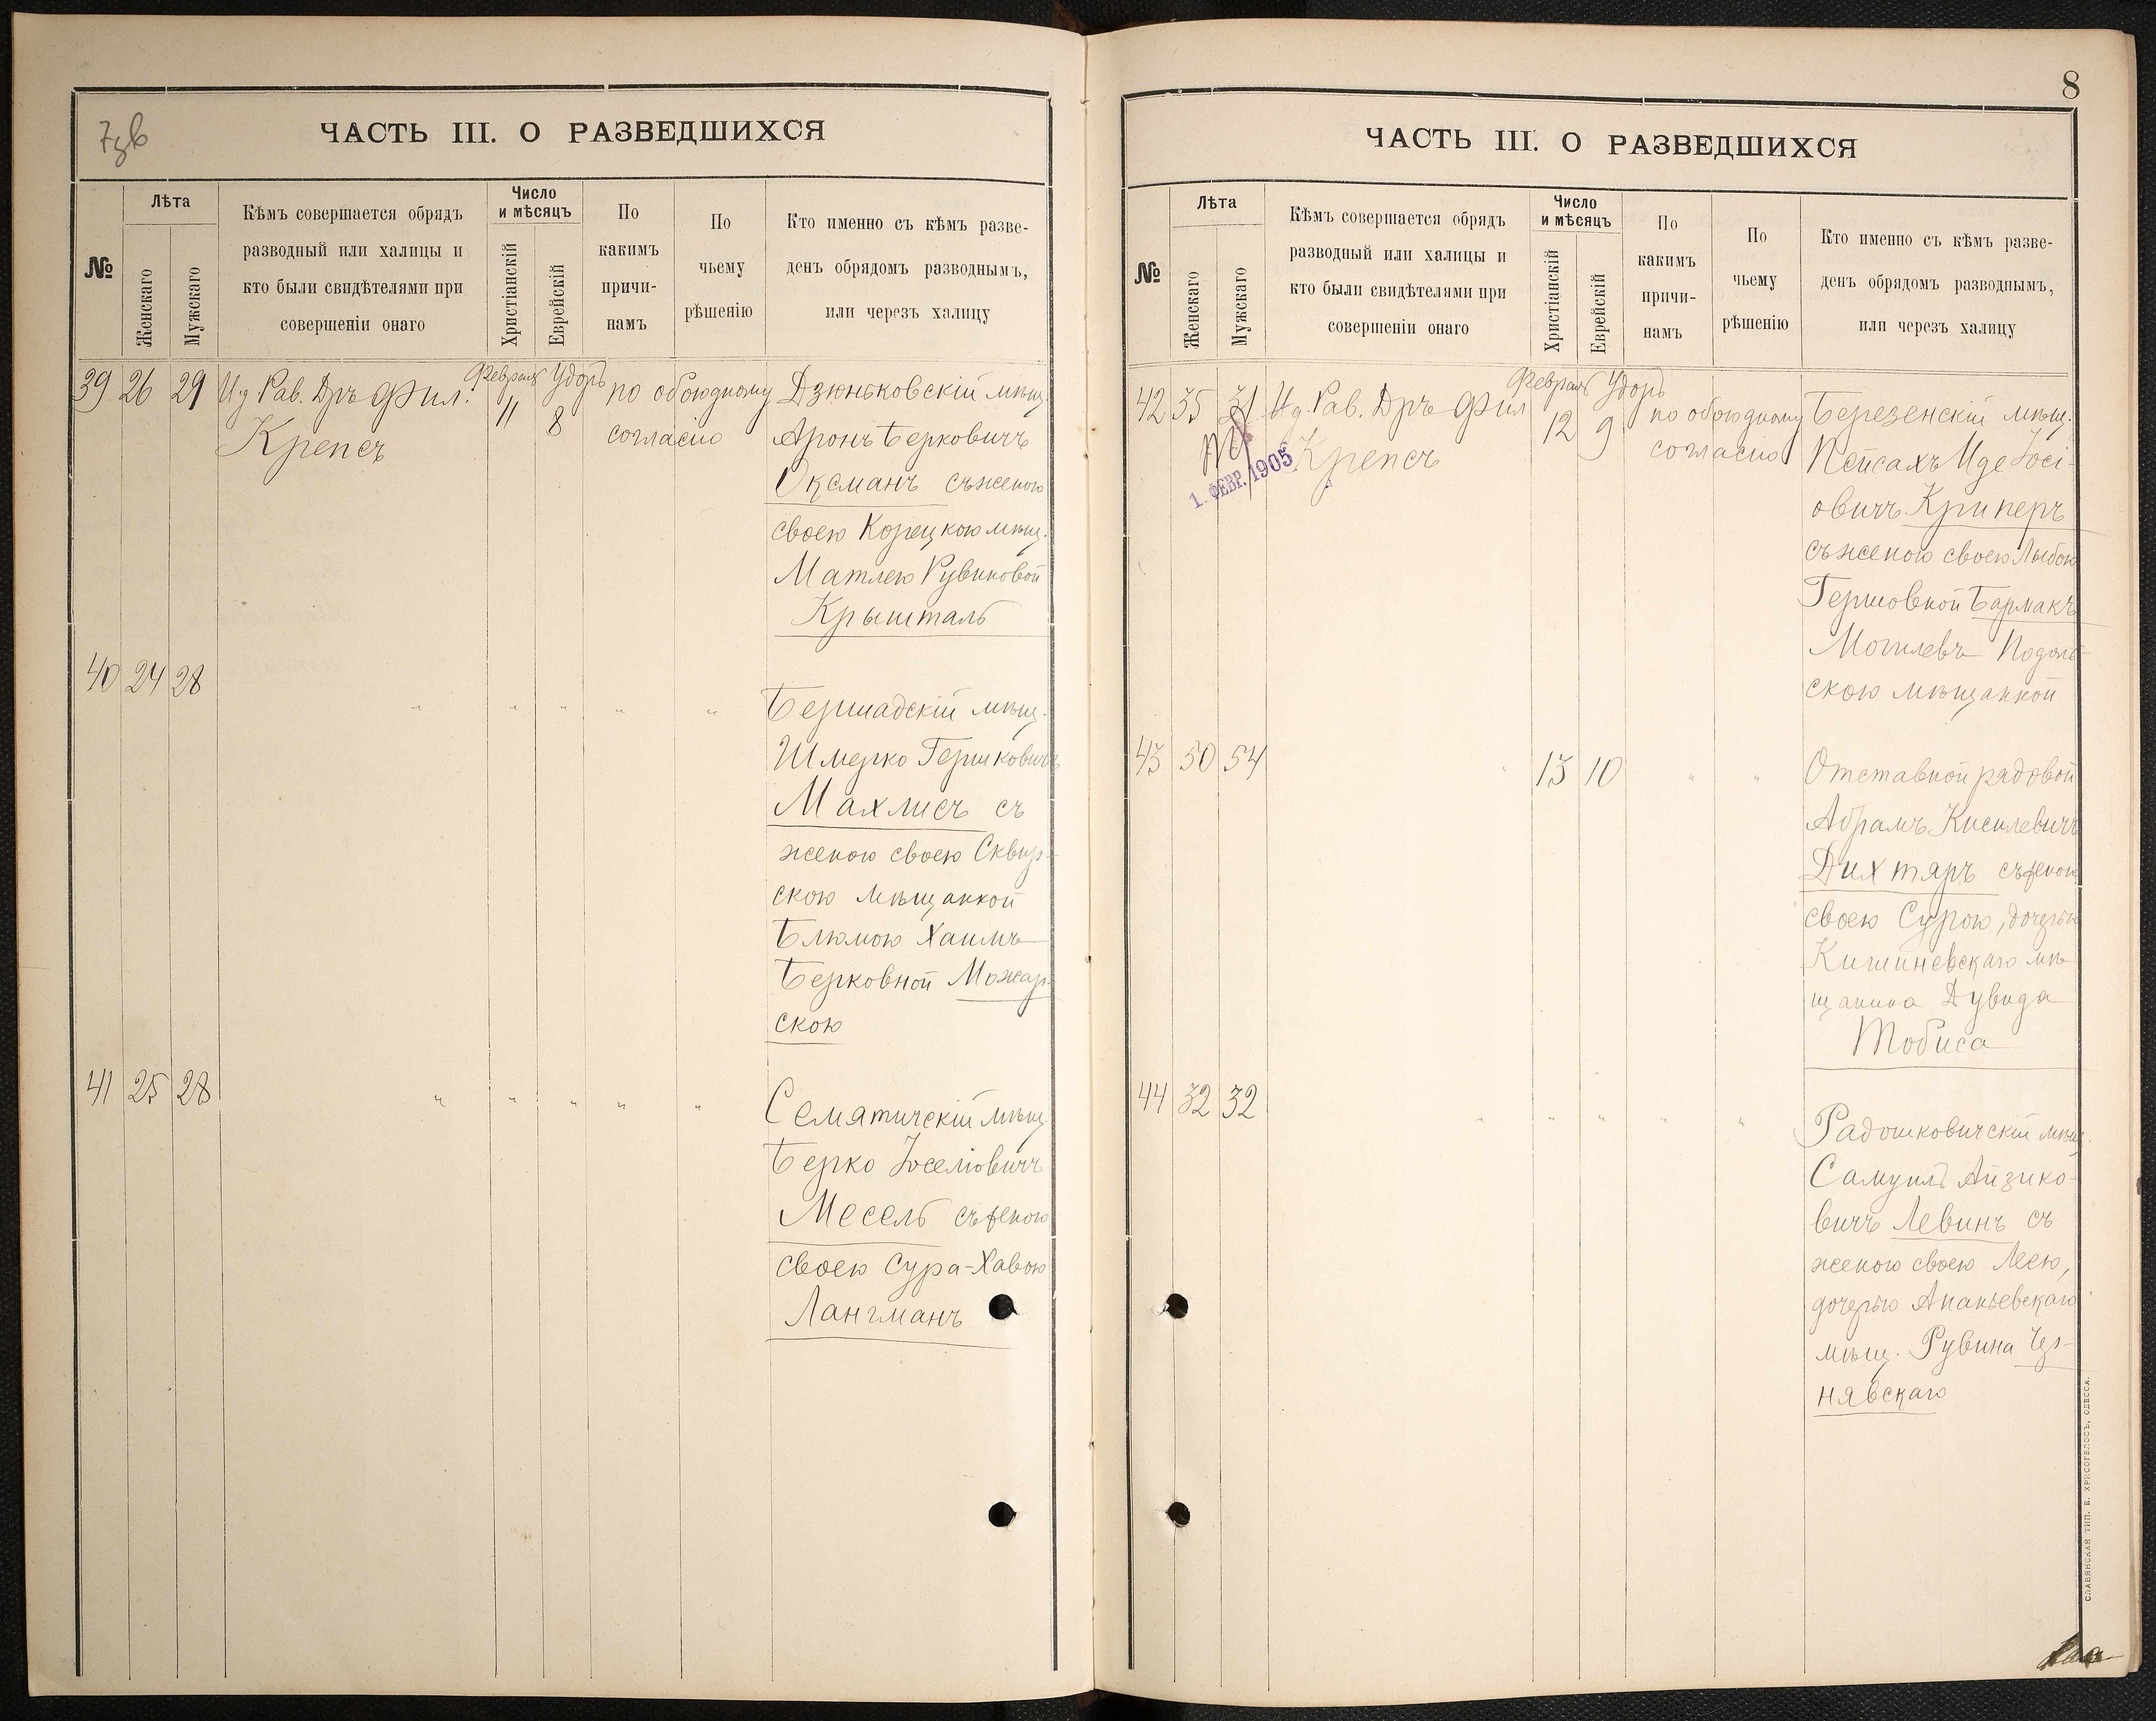 7 зв
ЧАСТЬ III. О РАЗВЕДШИХСЯ
№
Лѣта
Женскаго
Мужскаго
Кѣмъ совершается обрядъ
разводный или халицы и
кто были свидѣтелями при
совершеніи онаго
Число
и мѣсяцъ
Христіанскій
Еврейскій
По
какимъ
причи-
намъ
По
чьему
рѣшенію
Кто именно съ кѣмъ разве-
денъ обрядомъ разводнымъ,
или черезъ халицу
39 26 29 И д Рав. Дръ Фил.
Крепсъ
Февраль Удоръ
11 8
по обоюдному
согласію
Дзюньковскій мѣщ.
Аронъ Берковичъ
Оксманъ съ женою
своею Корецкою мѣщ.
Матлею Рувиновой
Крышталь
40 24 28 " " " " "
Бершадскій мѣщ.
Шмерко Гершковичъ
Махлисъ съ
женою своею Сквир-
скою мѣщанкой
Блюмою Хаимъ
Берковной Можар-
скою
41 25 28 " " " " "
Сематичскій мѣщ.
Берко Іоселіовичъ
Месель съ женою
своею Сура-Хавою
Лангманъ
8
ЧАСТЬ III. О РАЗВЕДШИХСЯ
№
Лѣта
Женскаго
Мужскаго
Кѣмъ совершается обрядъ
разводный или халицы и
кто были свидѣтелями при
совершеніи онаго
Число
и мѣсяцъ
Христіанскій
Еврейскій
По
какимъ
причи-
намъ
По
чьему
рѣшенію
Кто именно съ кѣмъ разве-
денъ обрядомъ разводнымъ,
или черезъ халицу
42 35 31 И д. Рав. Дръ Фил
Крепсъ
1. ФЕВР. 1905
Февраль Удоръ
12 9
по обоюдному
согласію
Березенскій мѣщ.
Пейсахъ Иде Іосі-
овичъ Криперъ
съ женою своею Лыбою
Гершовной Бармакъ
Могилевъ Подоль-
скою мѣщанкой
43 50 54 " 13 10 " "
Отставной рядовой
Абрамъ Киселевичъ
Дихтяръ съ женою
своею Сурою, дочерью
Кишиневскаго мѣ-
щанина Дувида
Тобиса
44 32 32 " " " " "
Радошковичскій мѣщ.
Самуилъ Айзико-
вичъ Левинъ съ
женою своею Леею,
дочерью Ананьевскаго
мѣщ. Рувина Чер-
нявскаго
СЛАВЯНСКАЯ ТИП. Е. ХРИСОГЕЛОСЪ, ОДЕССА.